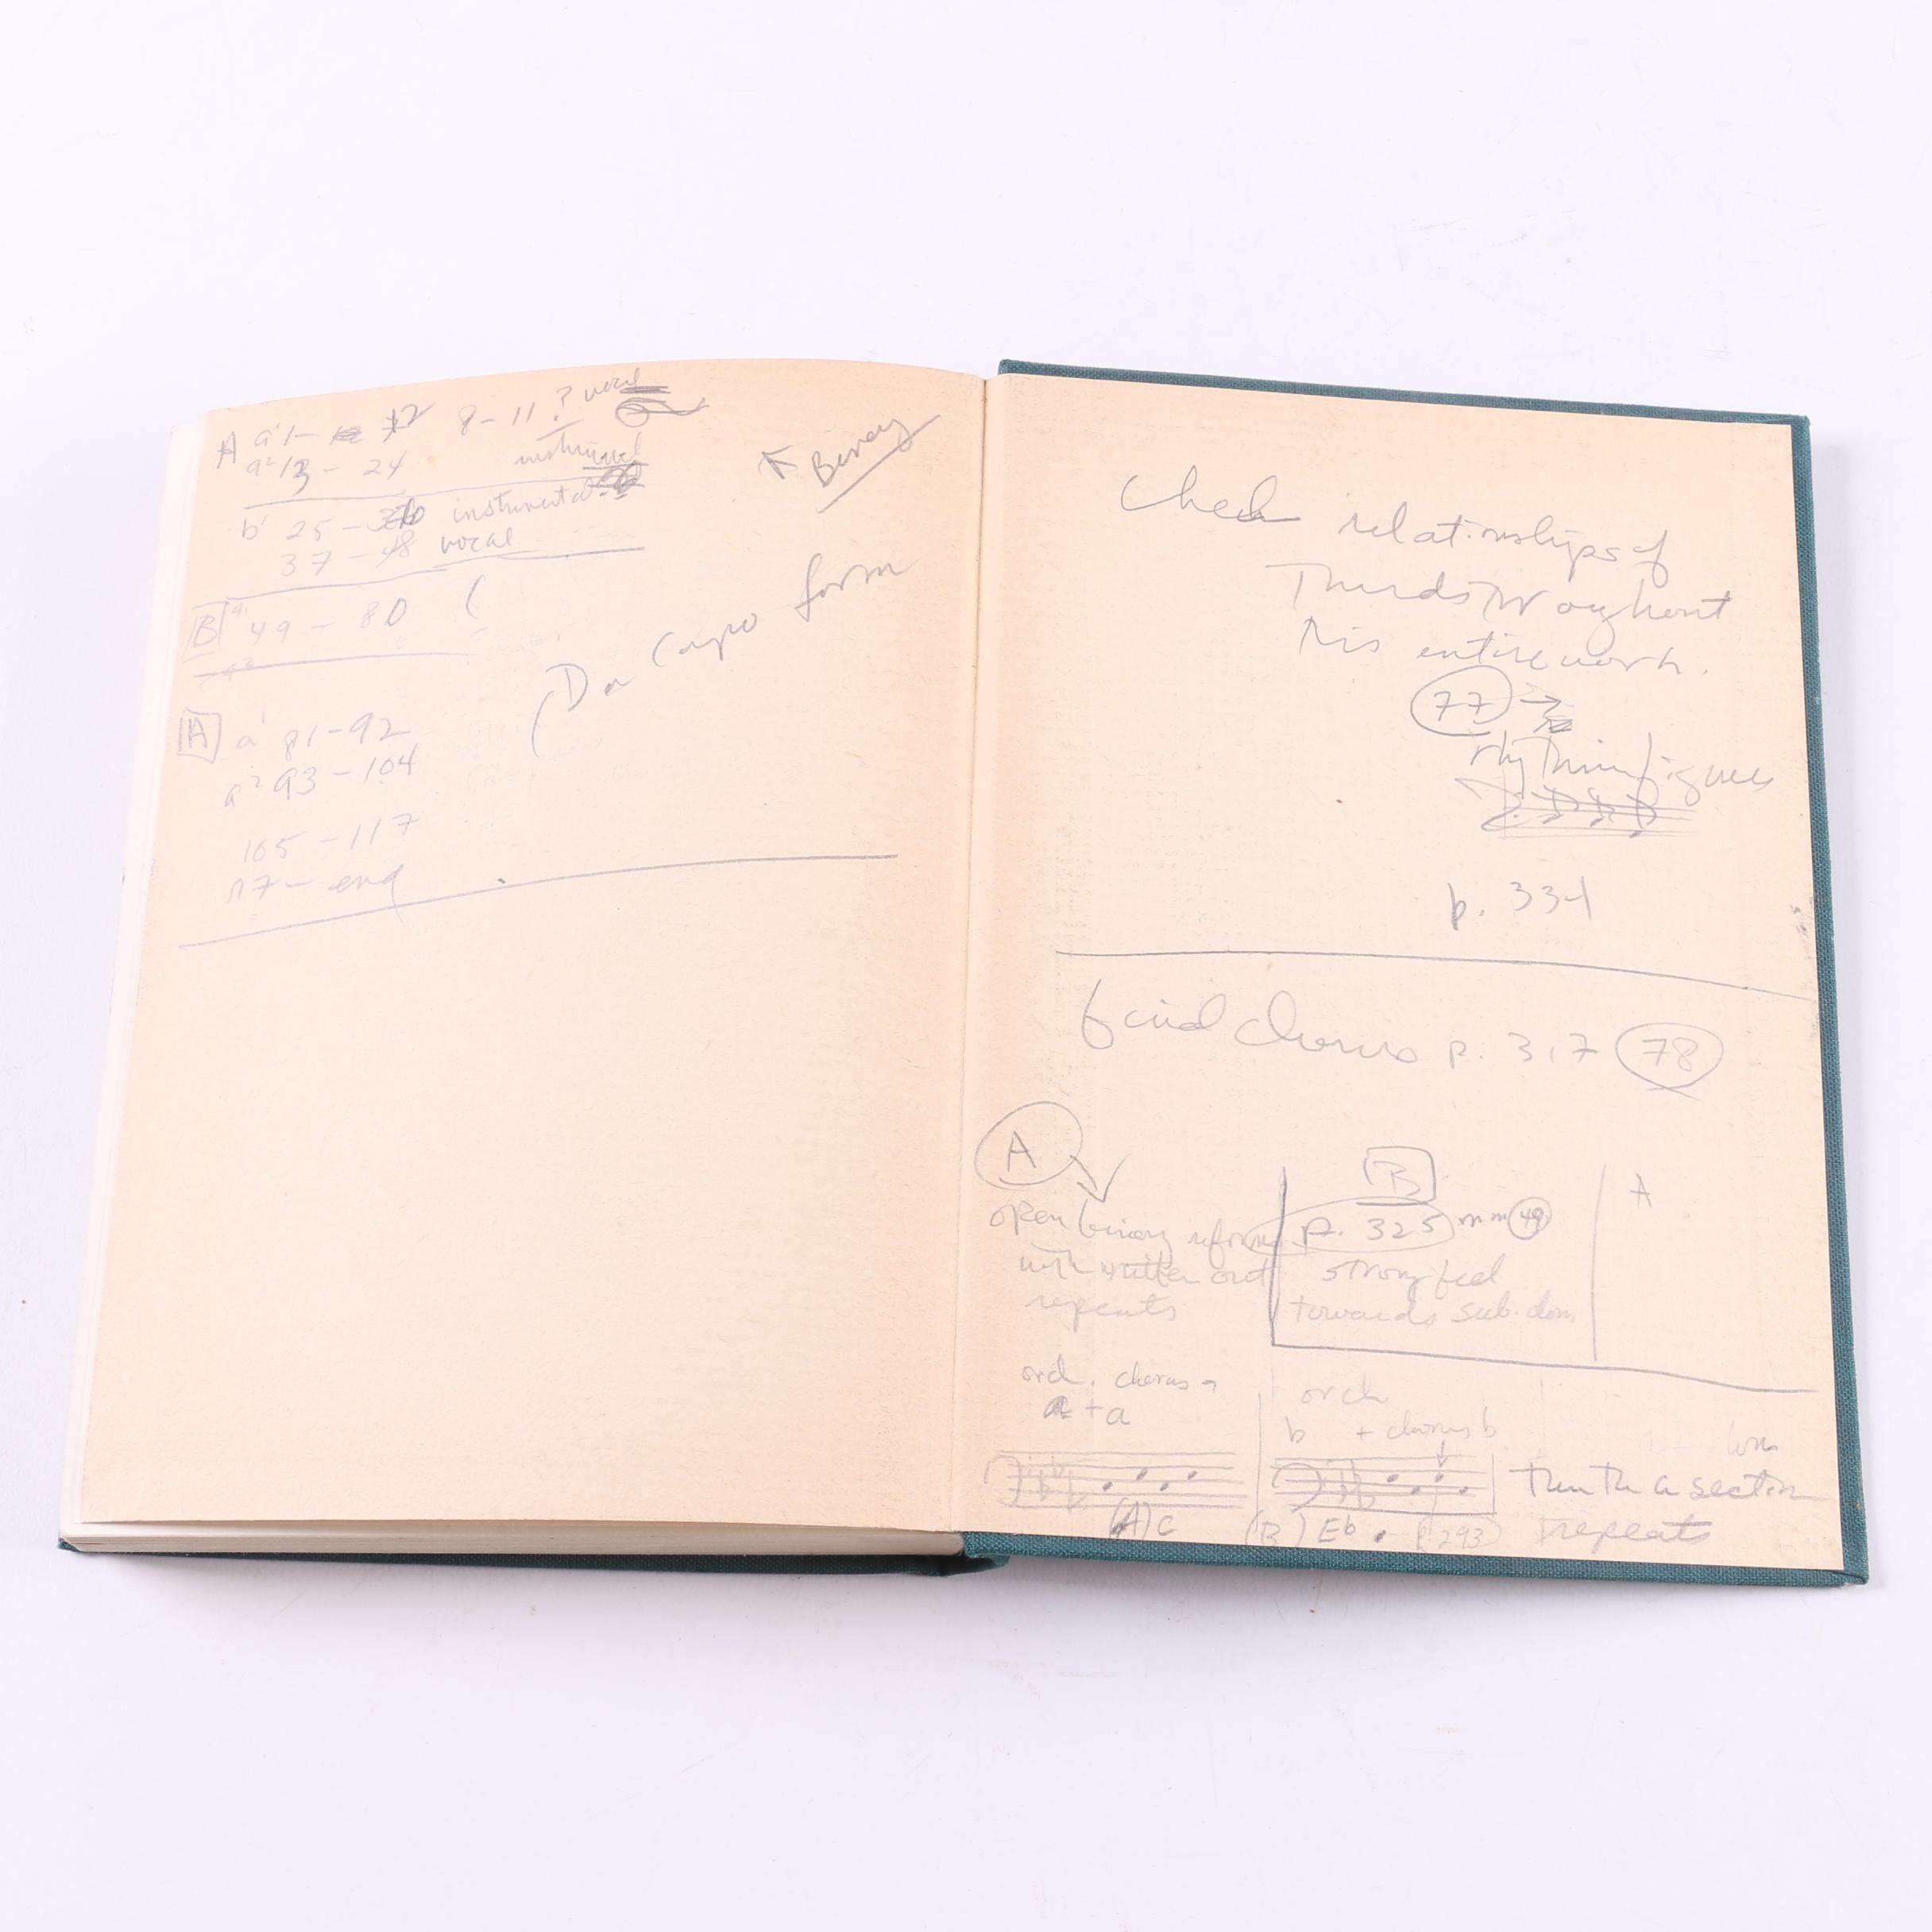 A a¹ 1– 12 8–11? vocal
a² 13 – 24 instrumental
b¹ 25 – 36 instrumental
37 – 48 vocal
B 49 – 80 (
A a¹ 81–92
a² 93–104
105–117
117– end
Binary
Da Capo form
Check relationships of
Thirds throughout
this entire work.
77
rhythmic figures
p. 334
final chorus p. 317 78
A
open binary
with written out
repeats
B
p. 325 mm 49
strong feel
towards sub. dom
A
orch. chorus a
a + a
orch
b + chorus b
(A) c
(B) Eb p 293
Then the a section
repeats